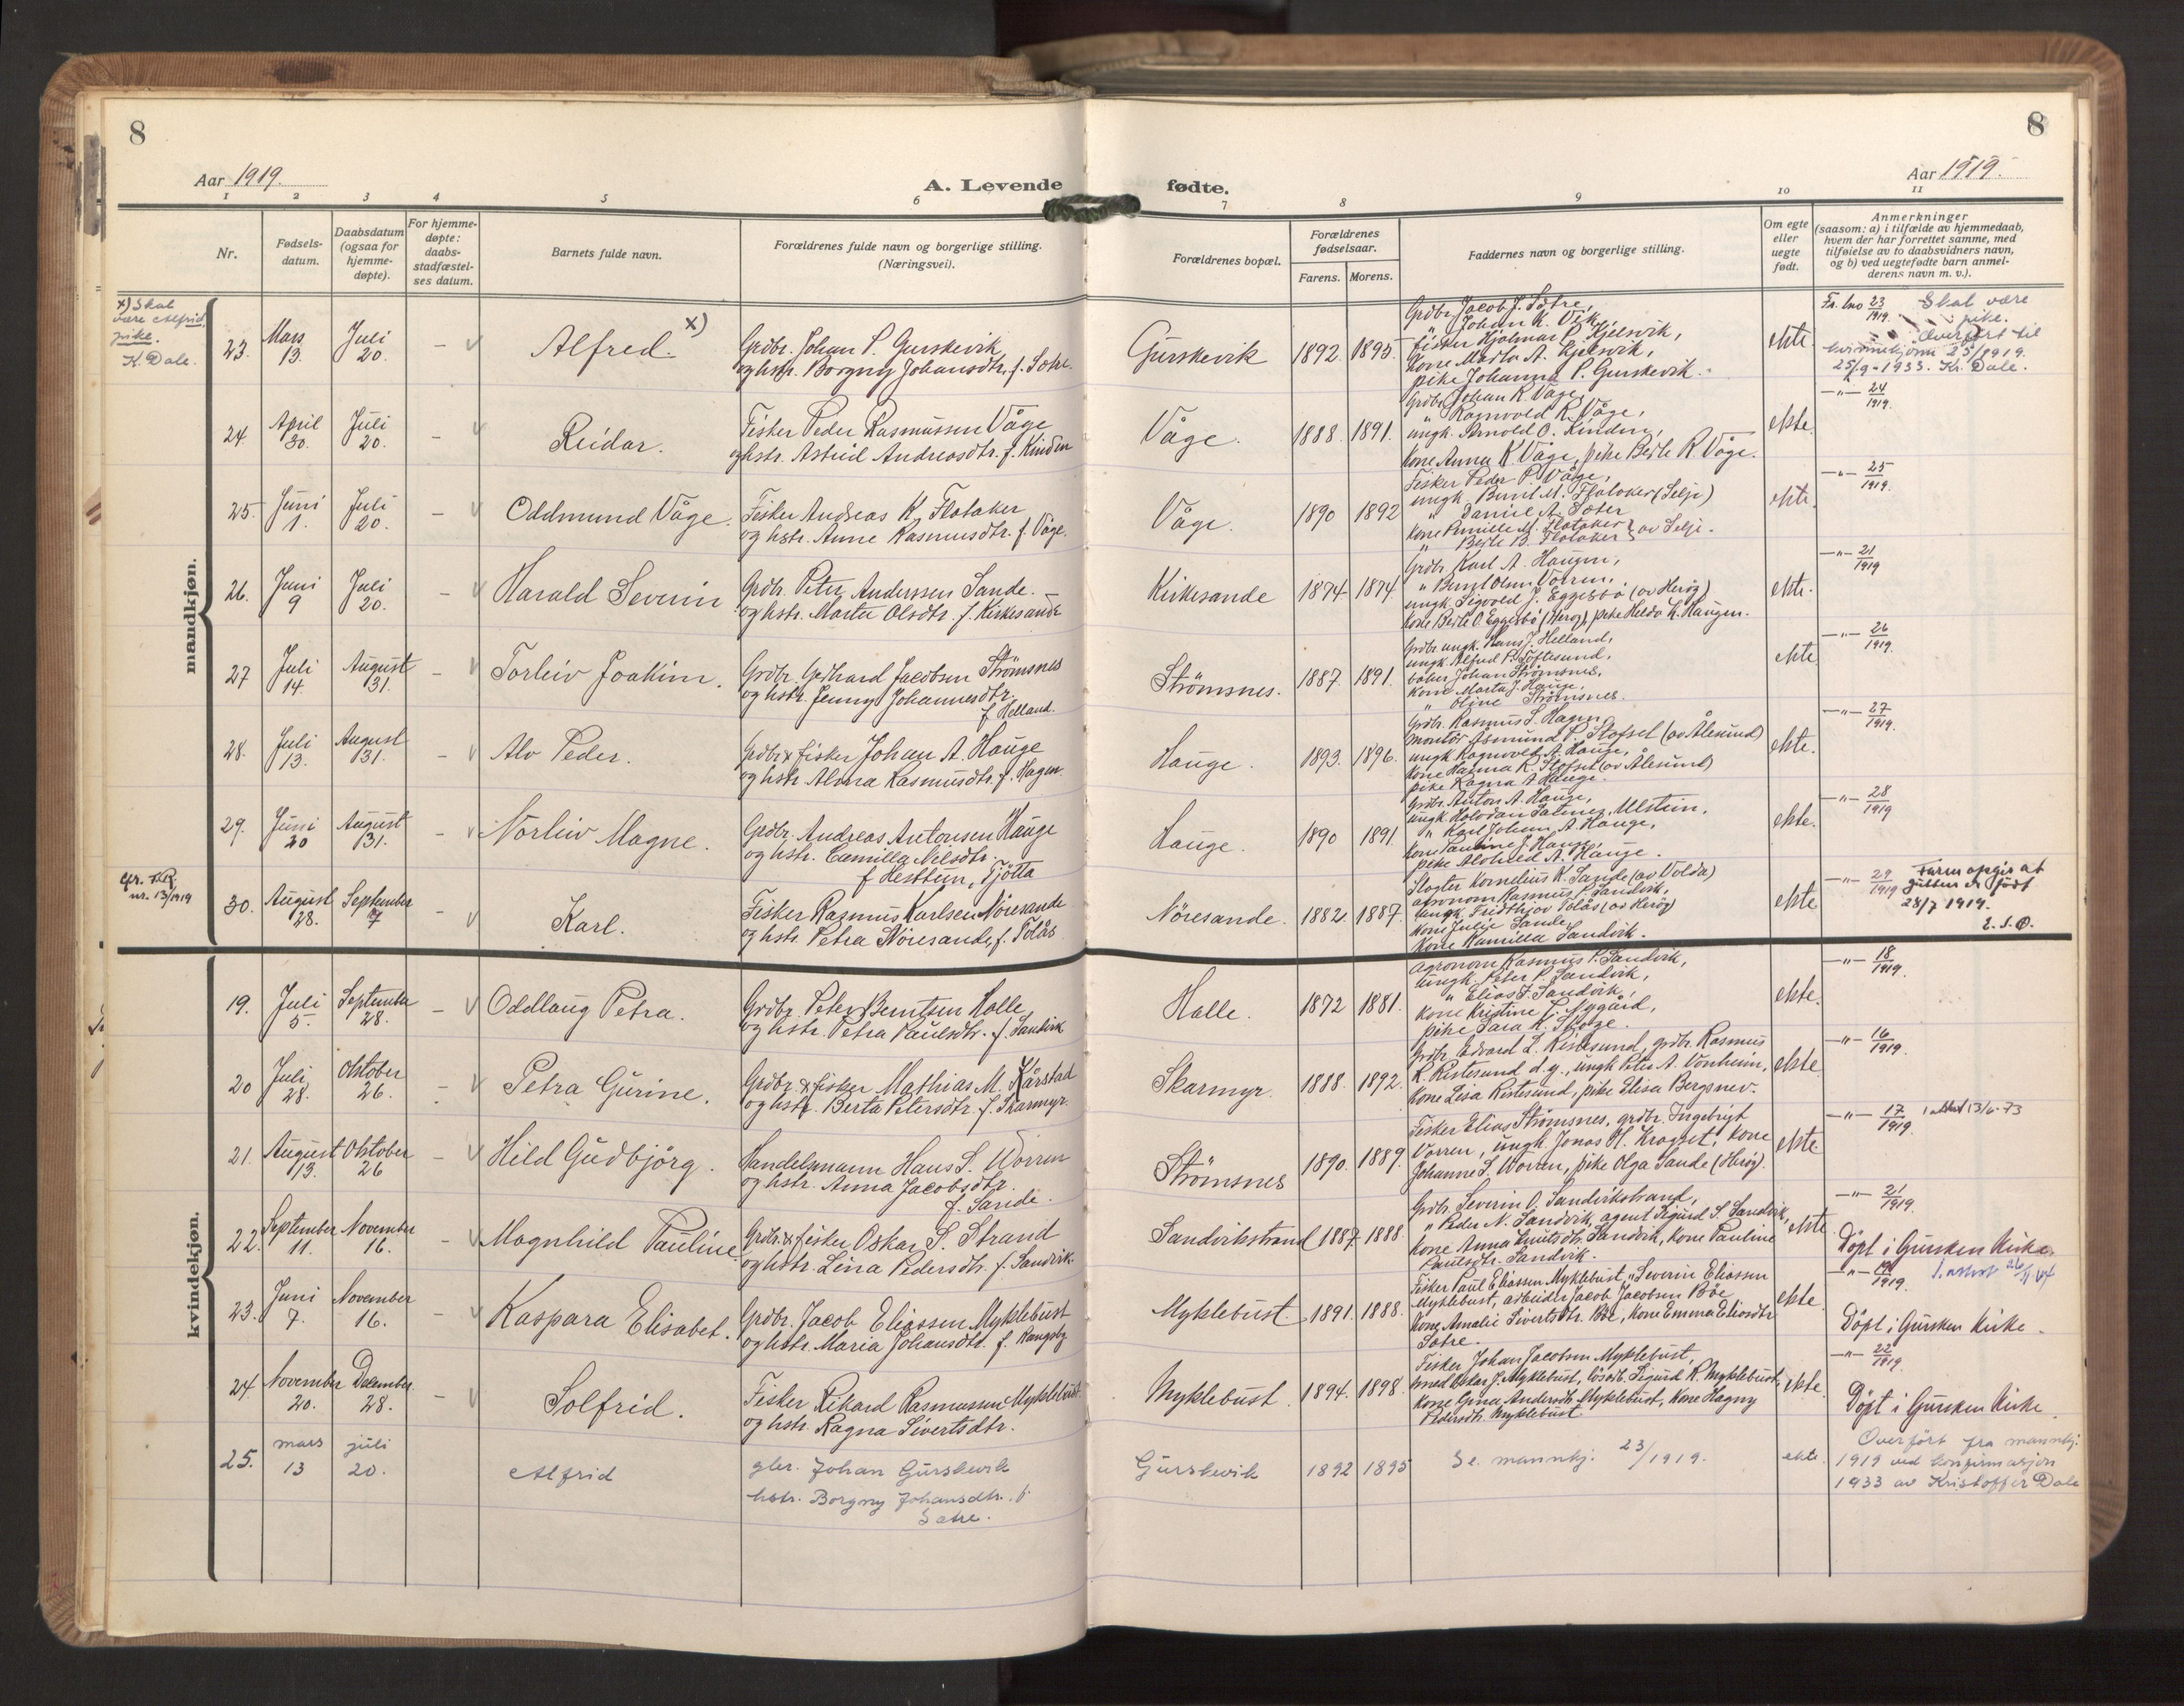 8
8
Aar 1919.
A. Levende
fødte.
Aar 1919.
1 2 3 4 5 6 7 8 9 10 11
Nr.
Fødsels-
datum.
Daabsdatum
(ogsaa for
hjemme-
døpte).
For hjemme-
døpte:
daabs-
stadfæstel-
ses datum.
Barnets fulde navn.
Forældrenes fulde navn og borgerlige stilling.
(Næringsvei).
Forældrenes bopæl.
Forældrenes
fødselsaar.
Farens. Morens.
Faddernes navn og borgerlige stilling.
Om egte
eller
uegte
født.
Anmerkninger
(saasom: a) i tilfælde av hjemmedaab,
hvem der har forrettet samme, med
tilføielse av to daabsvidners navn,
og b) ved uegtefødte barn anmel-
derens navn m. v.).
mandkjøn.
x) Skal
være Alfrid,
pike.
K. Dale.
23. Mars 13. Juli 20. - Alfred. x)
Grdbr. Johan P. Gurskevik
og hstr. Borgny Johansdtr. f. Sætre.
Gurskevik 1892. 1895.
Grdbr. Jacob J. Sætre,
" Johan K. Vik,
fisker Hjalmar P. Kjelsvik,
kone Marta A. Kjelsvik,
pike Johanna P. Gurskevik.
ekte.
Fr. lno 23/1919. Skal være
pike.
Overført til
kvinnekjønn 25/1919.
25/9-1933. Kr. Dale.
24. April 30. Juli 20. - Reidar.
Fisker Peder Rasmussen Våge
og hstr. Astrid Andreasdtr. f. Kinden
Våge. 1888. 1891.
Grdbr. Johan R. Våge,
" Ragnvald R. Våge,
ungk. Arnold O. Kinden,
kone Anna K. Våge, pike Berte R. Våge.
ekte.
-"- 24/1919.
25. Juni 1. Juli 20. - Oddmund Våge.
Fisker Andreas K. Flatøker
og hstr. Anne Rasmusdtr. f. Våge.
Våge. 1890 1892
Fisker Peder P. Våge,
ungk. Bernt M. Flatøker (Selje)
" Daniel A. Sæter
kone Pernille M. Flatøker
" Berte B. Flatøker } av Selje.
ekte.
-"- 25/1919.
26. Juni 9 Juli 20. - Harald Severin
Grdbr. Peter Anderssen Sande.
og hstr. Marta Olsdtr. f. Kirkesande
Kirkesande 1874 1874.
Grdbr. Karl A. Haugen,
" Bernt Olsen Vorren,
ungk. Sigvald J. Eggesbø (av Herøy)
kone Berte O. Eggesbø (Herøy), pike Helda K. Haugen.
ekte.
-"- 21/1919
27 Juli 14. August 31. - Torleiv Joakim.
Grdbr. Gerhard Jacobsen Strömsnes
og hstr. Jenny Johannesdtr.
f. Helland.
Strömsnes. 1887. 1891.
Grdbr. ungk. Hans J. Helland,
ungk. Alfred P. Toftesund,
bøker Johan Strömsnes,
kone Marta J. Hauge,
" Oline Strömsnes.
ekte
-"- 26/1919.
28. Juli 13. August 31. - Alv Peder.
Grdbr. & fisker Johan A. Hauge
og hstr. Alma Rasmusdtr. f. Hagen.
Hauge. 1893. 1896.
Grdbr. Rasmus L. Hagen,
montør Asmund P. Slofset (av Ålesund)
ungk. Ragnvald A. Hauge,
kone Hanna R. Slofset (av Ålesund)
pike Ragna A. Hauge.
ekte.
-"- 27/1919.
29. Juni 20 August 31. - Norleiv Magne.
Grdbr. Andreas Antonsen Hauge
og hstr. Camilla Nilsdtr.
f. Hesttun, Tjötta
Hauge. 1890 1891
Grdbr. Anton A. Hauge,
ungk. Halvdan Sætner, Ulstein,
" Karl Johan A. Hauge,
kone Pauline J. Hauge,
pike Alvhild A. Hauge.
ekte.
-"- 28/1919
cfr. KR.
nr. 13/1919
30. August 28. September 7 - Karl.
Fisker Rasmus Karlsen Nöresande
og hstr. Petra Nöresande, f. Tolås
Nöresande. 1882. 1887.
Slagter Kornelius K. Sande (av Volda)
agronom Rasmus P. Sandvik,
ungk. Fridthjov Tolås (av Herøy)
kone Julie Sande
kone Kamilla Sandvik.
ekte
-"- 29/1919 Faren opgir at
gutten er født
28/7 1919.
E. S. O.
kvindekjøn.
19. Juli 5. September 28. - Oddlaug Petra.
Grdbr. Peter Berntsen Halle
og hstr. Petra Paulsdtr. f. Sandvik
Halle. 1872 1881.
Agronom Rasmus P. Sandvik,
ungk. Peter P. Sandvik,
" Elias J. Sandvik,
kone Kristine L. Nygård,
pike Sara K.
ekte.
-"- 18/1919.
20 Juli 28. Oktober 26. - Petra Gurine.
Grdbr. & fisker Mathias M. Kårstad
og hstr. Berta Petersdtr. f. Skarmyr.
Skarmyr. 1888. 1892.
Grdbr. Edvard L. Ristesund, grdbr. Rasmus
R. Ristesund d.y., ungk. Peter A. Vonheim,
kone Lisa Ristesund, pike Elisa Bergsnev.
ekte.
-"- 16/1919.
21. August 13. Oktober 26 - Hild Gudbjörg.
Handelsmann Hans S. Worren
og hstr. Anna Jacobsdtr.
f. Sande.
Strömsnes 1890. 1889.
Fisker Elias Strömsnes, grdbr. Ingebrigt
Vorren, ungk. Jonas H. Kragset, kone
Johanne S. Worren, pike Olga Sande (Herøy).
ekte.
-"- 17/1919. 1 attest 13/6-73
22. September 11. November 16. - Magnhild Pauline
Grdbr. & fisker Oskar S. Strand
og hstr. Lina Pedersdtr. f. Sandvik.
Sandvikstrand 1887 1888.
Grdbr. Severin O. Sandvikstrand,
" Peder N. Sandvik, agent Sigurd S. Sandvik,
kone Anna Knutsdtr. Sandvik, kone Pauline
Paulsdtr. Sandvik.
ekte.
-"- 21/1919.
Döpt i Gursken Kirke.
23. Juni 7. November 16. - Kaspara Elisabet.
Grdbr. Jacob Eliassen Myklebust
og hstr. Maria Johansdtr. f. Rangsby
Myklebust. 1891. 1888.
Fisker Paul Eliassen Myklebust, " Severin Eliassen
Myklebust, arbeider Jacob Jacobsen Böe
kone Amalie Sivertsdtr. Böe, kone Emma Eliasdtr.
Sætre.
ekte.
-"- 19/1919.
Döpt i Gursken Kirke.
24. November 20. Desember 28. - Solfrid.
Fisker Rikard Rasmussen Myklebust
og hstr. Ragna Sivertsdtr.
Myklebust. 1894. 1898.
Fisker Johan Jacobsen Myklebust,
smed Oskar J. Myklebust, lösarb. Sigurd R. Myklebust,
kone Gina Andersdtr. Myklebust, kone Hagny
Pedersdtr. Myklebust.
ekte.
-"- 22/1919.
Döpt i Gursken Kirke.
25. mars 13 juli 20. Alfrid
gbr. Johan Gurskevik
hstr. Borgny Johansdtr. f.
Sætre.
Gurskevik 1892 1895
Se mannkj. 23/1919.
ekte.
Overført fra mannkj.
1919 ved konfirmasjon
1933 av Kristoffer Dale